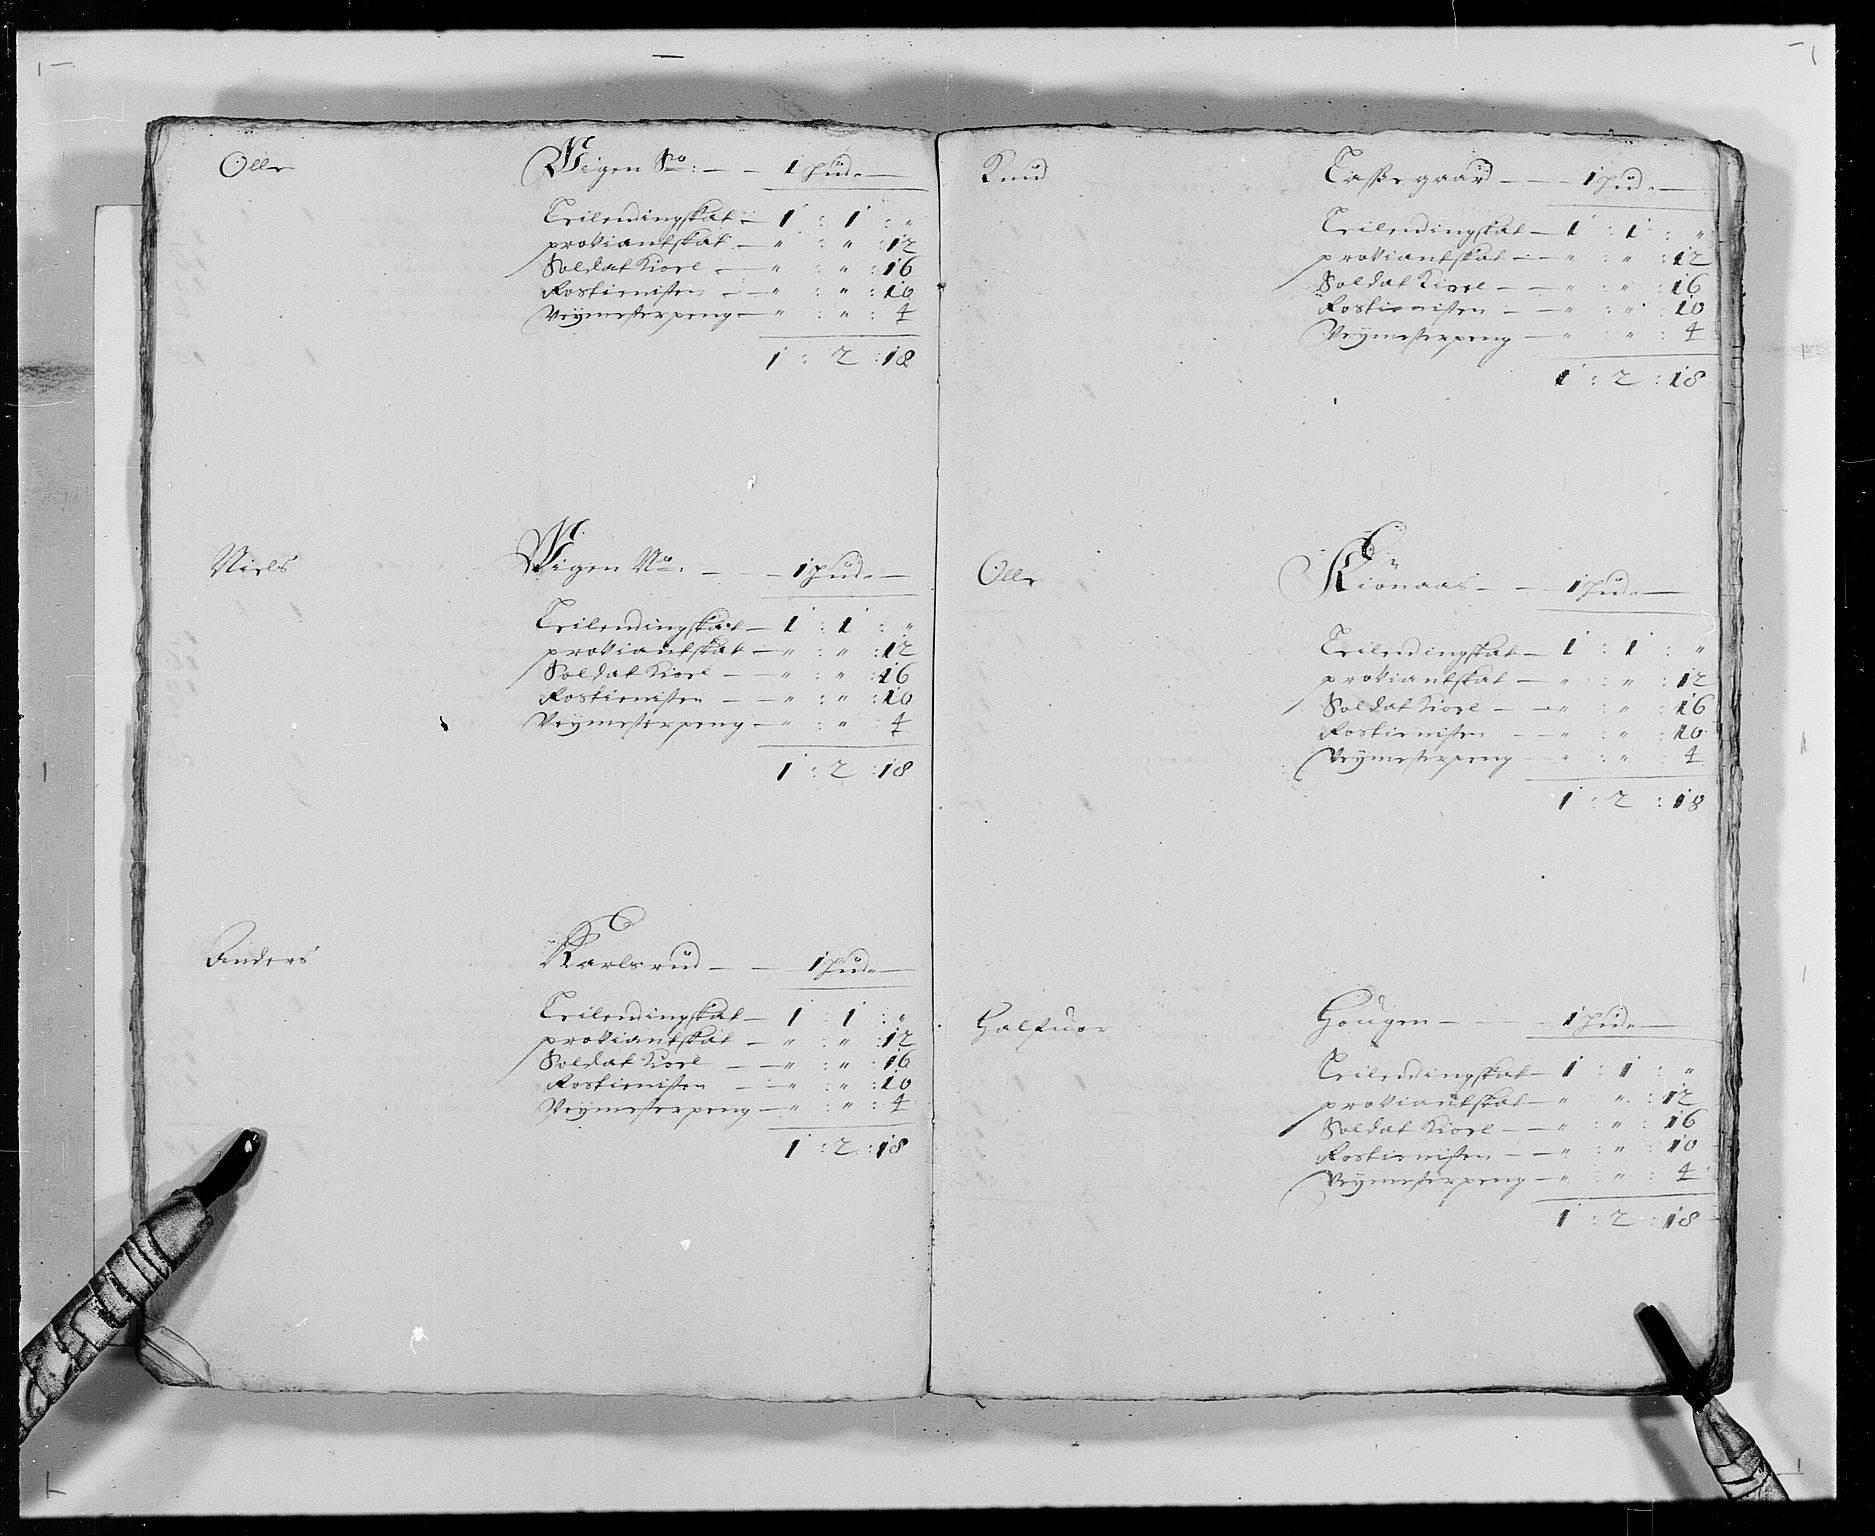 Olle Wigen So: — 1 hud
Leilendingskat — 1 : 1 : "
proviantskat — " : " : 12
Soldat Kiorl — " : " : 16
Rostienisten — " : " : 10
Veÿmesterpeng — " : " : 4
1 : 2 : 18
Niels Wigen No: — 1 hud
Leilendingskat — 1 : 1 : "
proviantskat — " : " : 12
Soldat Kiorl — " : " : 16
Rostienisten — " : " : 10
Veÿmesterpeng — " : " : 4
1 : 2 : 18
Anders Karlsrud — 1 hud
Leilendingskat — 1 : 1 : "
proviantskat — " : " : 12
Soldat Kiorl — " : " : 16
Rostienisten — " : " : 10
Veÿmesterpeng — " : " : 4
1 : 2 : 18
Knud — 1 hud
Leilendingskat — 1 : 1 : "
proviantskat — " : " : 12
Soldat Kiorl — " : " : 16
Rostienisten — " : " : 10
Veÿmesterpeng — " : " : 4
1 : 2 : 18
Olle Kiönaas — 1 hud
Leilendingskat — 1 : 1 : "
proviantskat — " : " : 12
Soldat Kiorl — " : " : 16
Rostienisten — " : " : 10
Veÿmesterpeng — " : " : 4
1 : 2 : 18
Halfuor Hougen — 1 hud
Leilendingskat — 1 : 1 : "
proviantskat — " : " : 12
Soldat Kiorl — " : " : 16
Rostienisten — " : " : 10
Veÿmesterpeng — " : " : 4
1 : 2 : 18